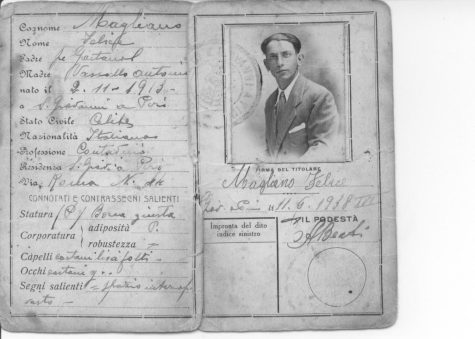 Cognome Magliano
Nome Felice
Padre fu Gaetano
Madre Vassallo Antonia
nato il 2-11-1913-
a S. Giovanni a Piro
Stato Civile Celibe
Nazionalità Italiana
Professione Contadino
Residenza S. Giov. a Piro
Via Roma N.
CONNOTATI E CONTRASSEGNI SALIENTI
Statura
Corporatura adiposità
robustezza =
Capelli castani lisci folti -
Occhi castani
Segni salienti =
FIRMA DEL TITOLARE
Magliano Felice
11.6.1938
Impronta del dito
indice sinistro
IL PODESTÀ